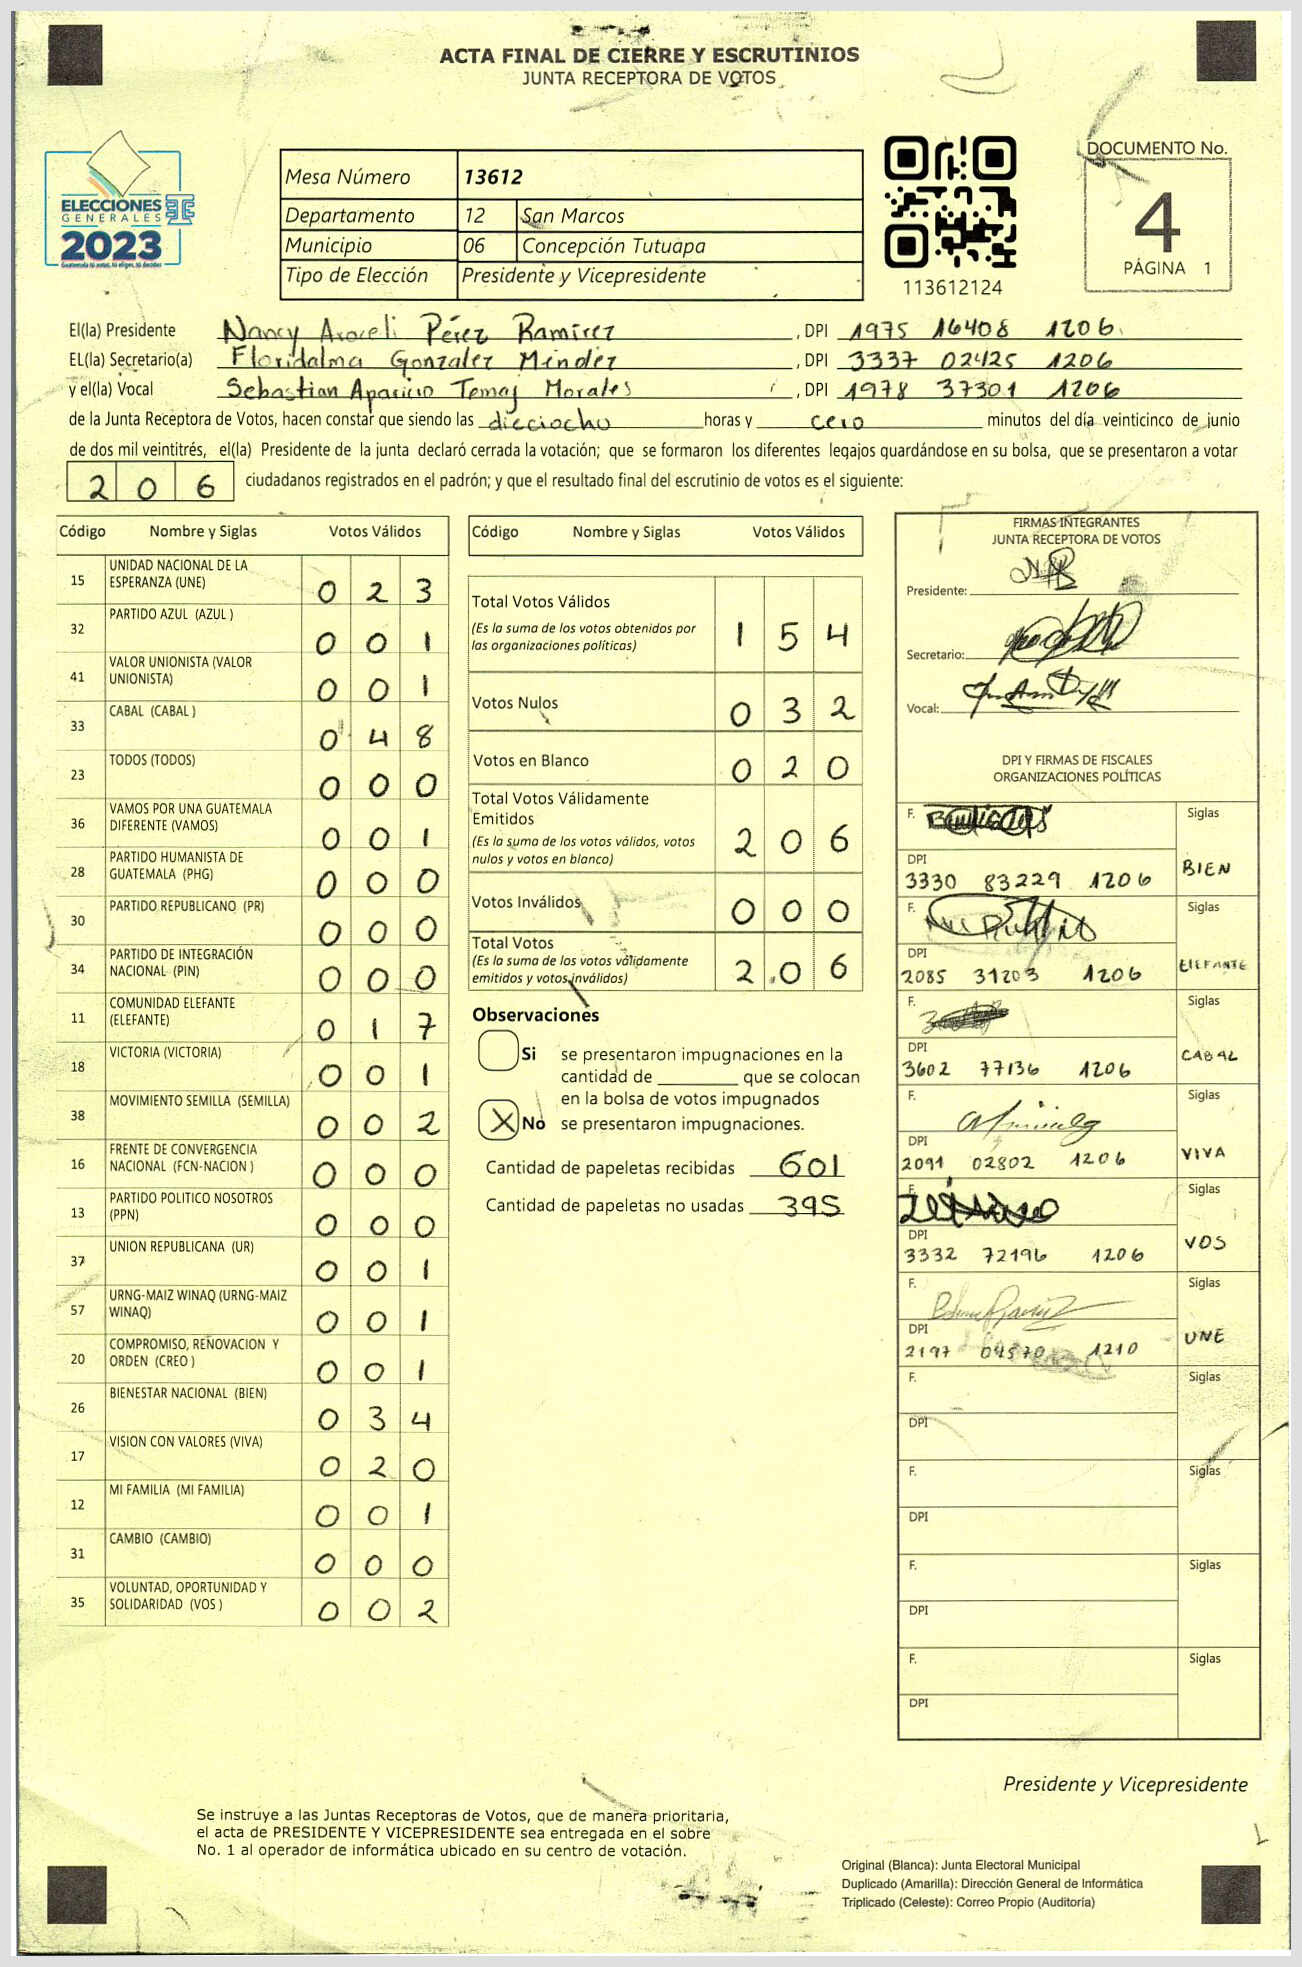 ACTA FINAL DE CIERRE Y ESCRUTINIOS
JUNTA RECEPTORA DE VOTOS
ELECCIONES
GENERALES
2023
Mesa Número 13612
Departamento 12 San Marcos
Municipio 06 Concepción Tutuapa
Tipo de Elección Presidente y Vicepresidente
113612124
DOCUMENTO No.
4
PÁGINA 1
El(la) Presidente Nancy Araceli Pérez Ramírez, DPI 1975 16408 1206
EL(la) Secretario(a) Floridalma Gonzalez Méndez, DPI 3337 02425 1206
y el(la) Vocal Sebastian Aparicio Temaj Morales, DPI 1978 37301 1206
de la Junta Receptora de Votos, hacen constar que siendo las dieciocho horas y cero minutos del día veinticinco de junio
de dos mil veintitrés, el(la) Presidente de la junta declaró cerrada la votación; que se formaron los diferentes legajos guardándose en su bolsa, que se presentaron a votar
206 ciudadanos registrados en el padrón; y que el resultado final del escrutinio de votos es el siguiente:
Código Nombre y Siglas Votos Válidos
15 UNIDAD NACIONAL DE LA
ESPERANZA (UNE) 0 2 3
32 PARTIDO AZUL (AZUL ) 0 0 1
41 VALOR UNIONISTA (VALOR
UNIONISTA) 0 0 1
33 CABAL (CABAL ) 0 4 8
23 TODOS (TODOS) 0 0 0
36 VAMOS POR UNA GUATEMALA
DIFERENTE (VAMOS) 0 0 1
28 PARTIDO HUMANISTA DE
GUATEMALA (PHG) 0 0 0
30 PARTIDO REPUBLICANO (PR) 0 0 0
34 PARTIDO DE INTEGRACIÓN
NACIONAL (PIN) 0 0 0
11 COMUNIDAD ELEFANTE
(ELEFANTE) 0 1 7
18 VICTORIA (VICTORIA) 0 0 1
38 MOVIMIENTO SEMILLA (SEMILLA) 0 0 2
16 FRENTE DE CONVERGENCIA
NACIONAL (FCN-NACION ) 0 0 0
13 PARTIDO POLITICO NOSOTROS
(PPN) 0 0 0
37 UNION REPUBLICANA (UR) 0 0 1
57 URNG-MAIZ WINAQ (URNG-MAIZ
WINAQ) 0 0 1
20 COMPROMISO, RENOVACION Y
ORDEN (CREO ) 0 0 1
26 BIENESTAR NACIONAL (BIEN) 0 3 4
17 VISION CON VALORES (VIVA) 0 2 0
12 MI FAMILIA (MI FAMILIA) 0 0 1
31 CAMBIO (CAMBIO) 0 0 0
35 VOLUNTAD, OPORTUNIDAD Y
SOLIDARIDAD (VOS ) 0 0 2
Código Nombre y Siglas Votos Válidos
Total Votos Válidos 1 5 4
(Es la suma de los votos obtenidos por
las organizaciones políticas)
Votos Nulos 0 3 2
Votos en Blanco 0 2 0
Total Votos Válidamente
Emitidos 2 0 6
(Es la suma de los votos válidos, votos
nulos y votos en blanco)
Votos Inválidos 0 0 0
Total Votos
(Es la suma de los votos válidamente
emitidos y votos inválidos) 2 0 6
Observaciones
Si se presentaron impugnaciones en la
cantidad de ________ que se colocan
en la bolsa de votos impugnados
X No se presentaron impugnaciones.
Cantidad de papeletas recibidas 601
Cantidad de papeletas no usadas 395
FIRMAS INTEGRANTES
JUNTA RECEPTORA DE VOTOS
Presidente:
Secretario:
Vocal:
DPI Y FIRMAS DE FISCALES
ORGANIZACIONES POLÍTICAS
F. Siglas
DPI BIEN
3330 83229 1206
F. Siglas
DPI ELEFANTE
2085 31203 1206
F. Siglas
DPI CABAL
3602 77136 1206
F. Siglas
DPI VIVA
2091 02802 1206
F. Siglas
DPI VOS
3332 72196 1206
F. Siglas
DPI UNE
2197 04570 1210
F. Siglas
DPI
F. Siglas
DPI
F. Siglas
DPI
F. Siglas
DPI
Presidente y Vicepresidente
Se instruye a las Juntas Receptoras de Votos, que de manera prioritaria,
el acta de PRESIDENTE Y VICEPRESIDENTE sea entregada en el sobre
No. 1 al operador de informática ubicado en su centro de votación.
Original (Blanca): Junta Electoral Municipal
Duplicado (Amarilla): Dirección General de Informática
Triplicado (Celeste): Correo Propio (Auditoría)